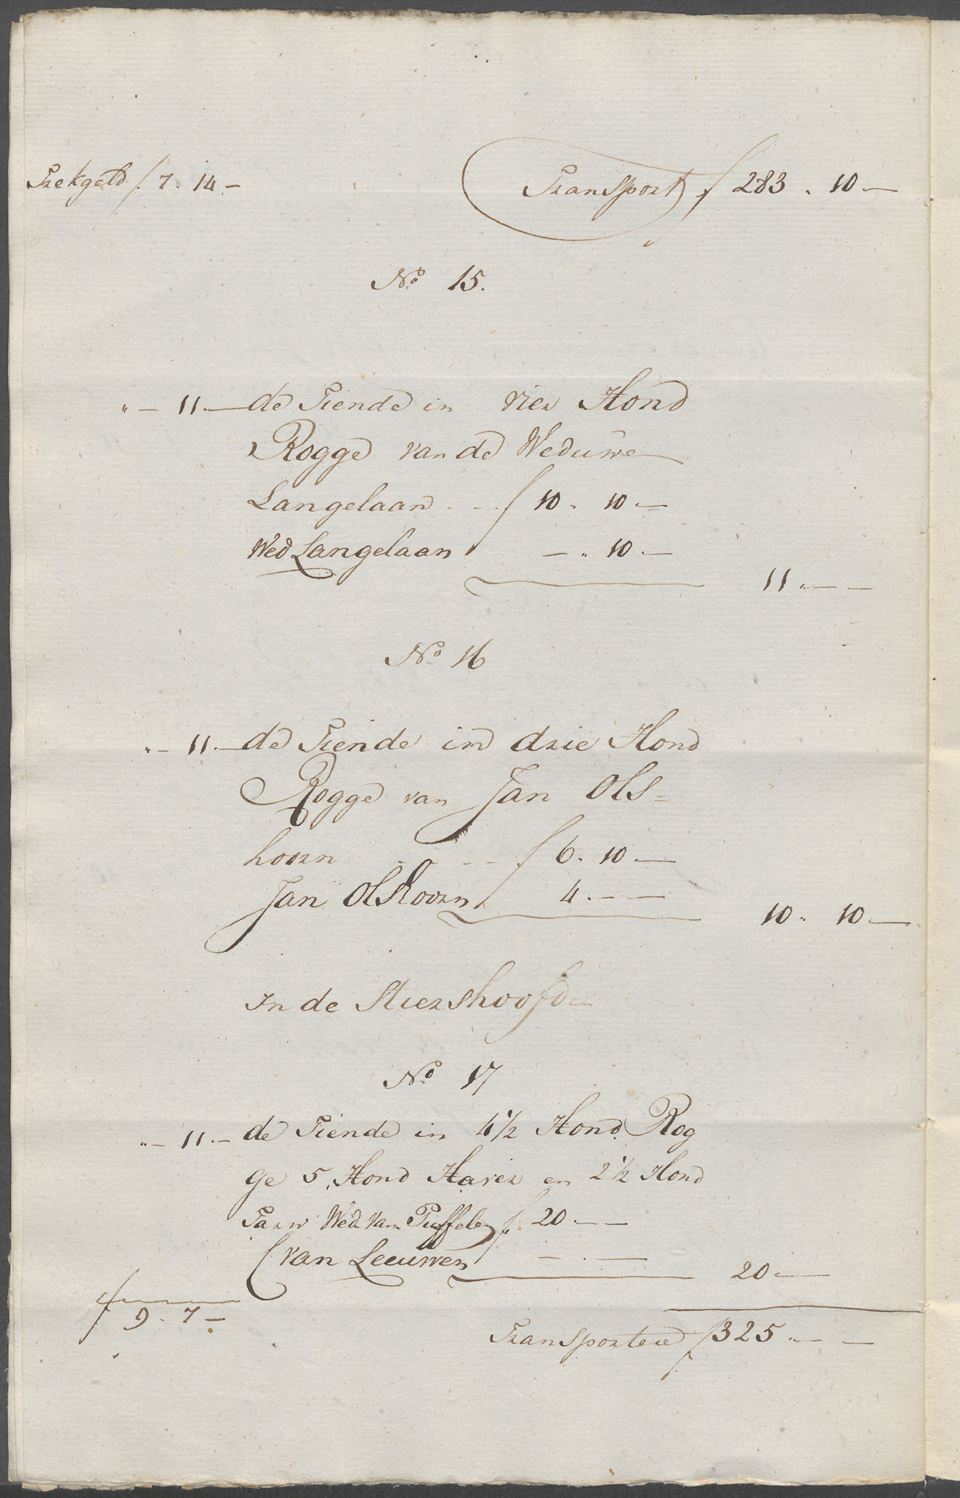 Trekgeld ƒ 7. 14 –
Transport ƒ 283 . 10 –
No 15.
„ – 11 – de Tiende in vier Hond
Rogge van de Weduwe
Langelaan . . ƒ 10 . 10 –
Wed Langelaan – „ 10 –
11 „ – –
No 16
„ – 11 – de Tiende in drie Hond
Rogge van Jan Ols=
hoorn . . – ƒ 6. 10 –
Jan Olshoorn 4 . – –
10 „ 10 –
In de Stiershoofden
No 17
„ – 11 – de Tiende in 4 1/2 Hond Rog
ge 5 Hond Haver en 2 1/2 Hond
Tarw Wed van Puffelen ƒ 20 – –
C van Leeuwen – . –
20 –
ƒ 9 . 7 –
Transportere ƒ 325 „ – –